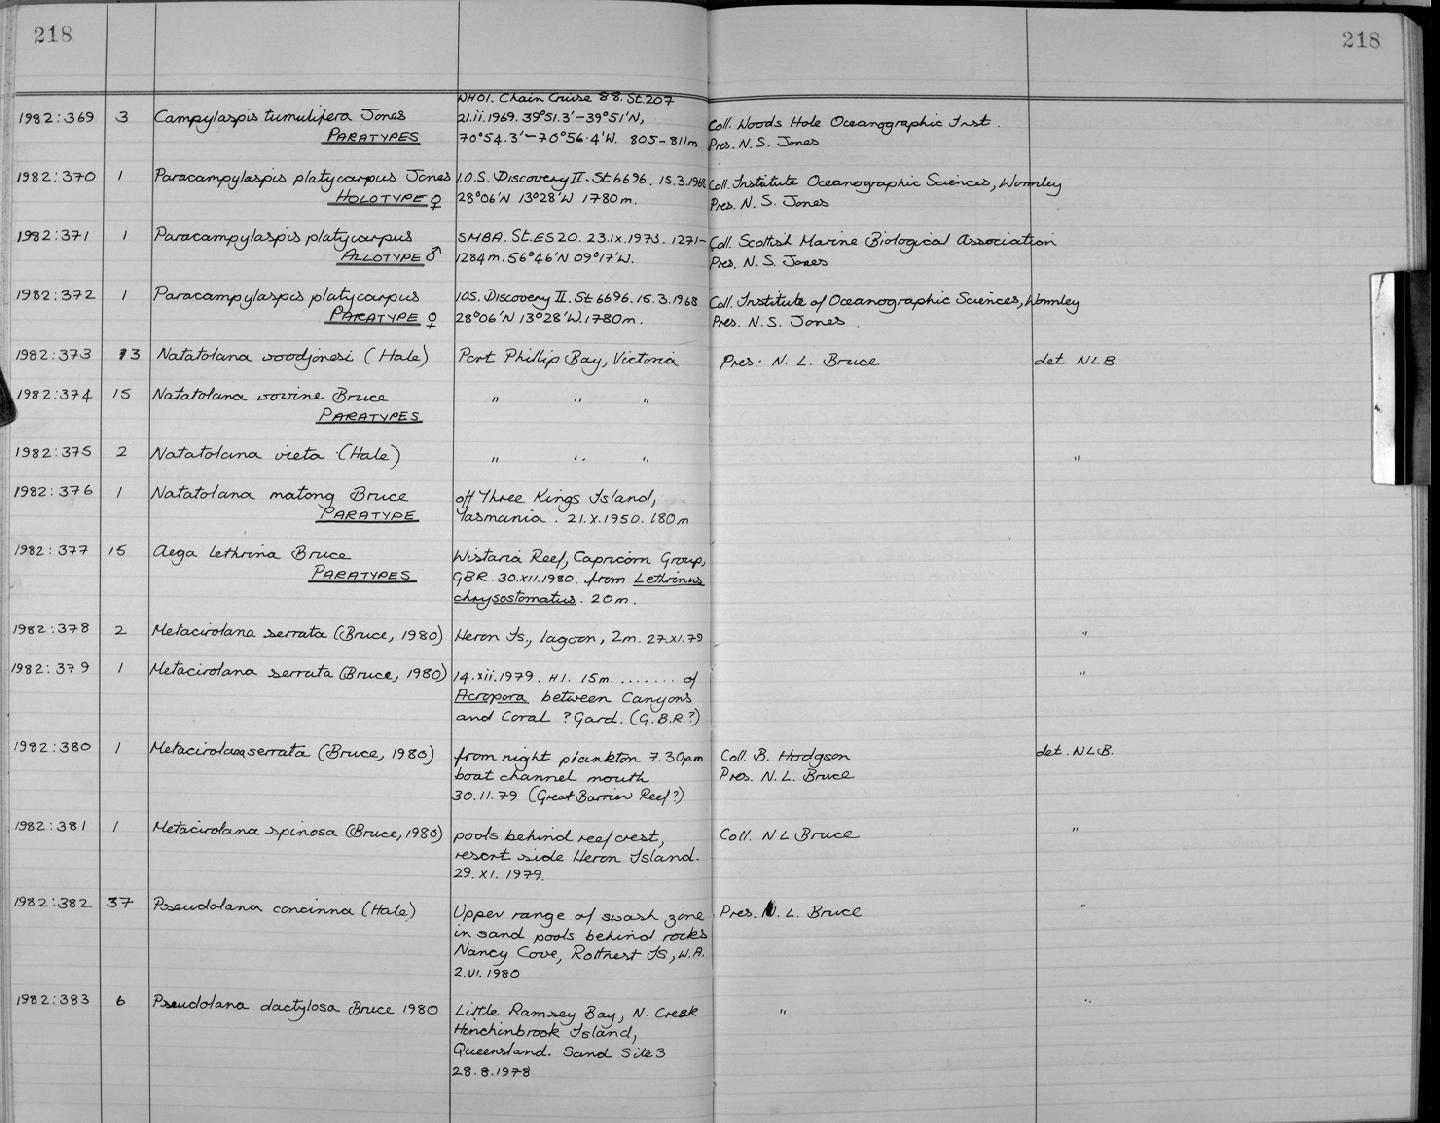 218
218
WHOI. Chain Cruise 88. St. 207
1982:369 3 Campylaspis tumulifera Jones 21.ii.1969. 39°51.3'-39°51'N,
PARATYPES 70°54.3'-70°56.4'W. 805-811m
Coll. Woods Hole Oceanographic Inst.
Pres. N.S. Jones
1982:370 1 Paracampylaspis platycarpus Jones I.O.S. Discovery II. St 6696. 15.3.1968 Coll. Institute Oceanographic Sciences, Wormley
HOLOTYPE ♀ 28°06'N 13°28'W 1780m. Pres. N.S. Jones
1982:371 1 Paracampylaspis platycarpus SMBA. St. ES20. 23.ix.1973. 1271- Coll. Scottish Marine Biological Association
ALLOTYPE ♂ 1284m. 56°46'N 09°17'W. Pres. N.S. Jones
1982:372 1 Paracampylaspis platycarpus IOS. Discovery II. St 6696. 15.3.1968 Coll. Institute of Oceanographic Sciences, Wormley
PARATYPE ♀ 28°06'N 13°28'W. 1780m. Pres. N.S. Jones
1982:373 13 Natatolana woodjonesi (Hale) Port Phillip Bay, Victoria Pres: N. L. Bruce det. NLB
1982:374 15 Natatolana wowine Bruce " " "
PARATYPES
1982:375 2 Natatolana vieta (Hale) " " " "
1982:376 1 Natatolana matong Bruce off Three Kings Island,
PARATYPE Tasmania. 21.X.1950. 180m
1982:377 15 Aega lethrina Bruce Wistaria Reef, Capricorn Group,
PARATYPES GBR. 30.XII.1980. from Lethrinus
chrysostomatus. 20m.
1982:378 2 Metacirolana serrata (Bruce, 1980) Heron Is., lagoon, 2m. 27.XI.79 "
1982:379 1 Metacirolana serrata (Bruce, 1980) 14.xii.1979. H1. 15m ....... of "
Acropora between Canyons
and Coral ?Gard. (G.B.R?)
1982:380 1 Metacirolana serrata (Bruce, 1980) from night plankton 7.30pm Coll. B. Hodgson det. NLB.
boat channel mouth Pres. N.L. Bruce
30.11.79 (Great Barrier Reef?)
1982:381 1 Metacirolana spinosa (Bruce, 1980) pools behind reef crest, Coll. N L Bruce "
resort side Heron Island.
29.XI.1979.
1982:382 37 Pseudolana concinna (Hale) Upper range of swash zone Pres. N. L. Bruce "
in sand pools behind rocks
Nancy Cove, Rottnest Is, W.A.
2.VI.1980
1982:383 6 Pseudolana dactylosa Bruce 1980 Little Ramsey Bay, N. Creek " "
Hinchinbrook Island,
Queensland. Sand Site 3
28.8.1978